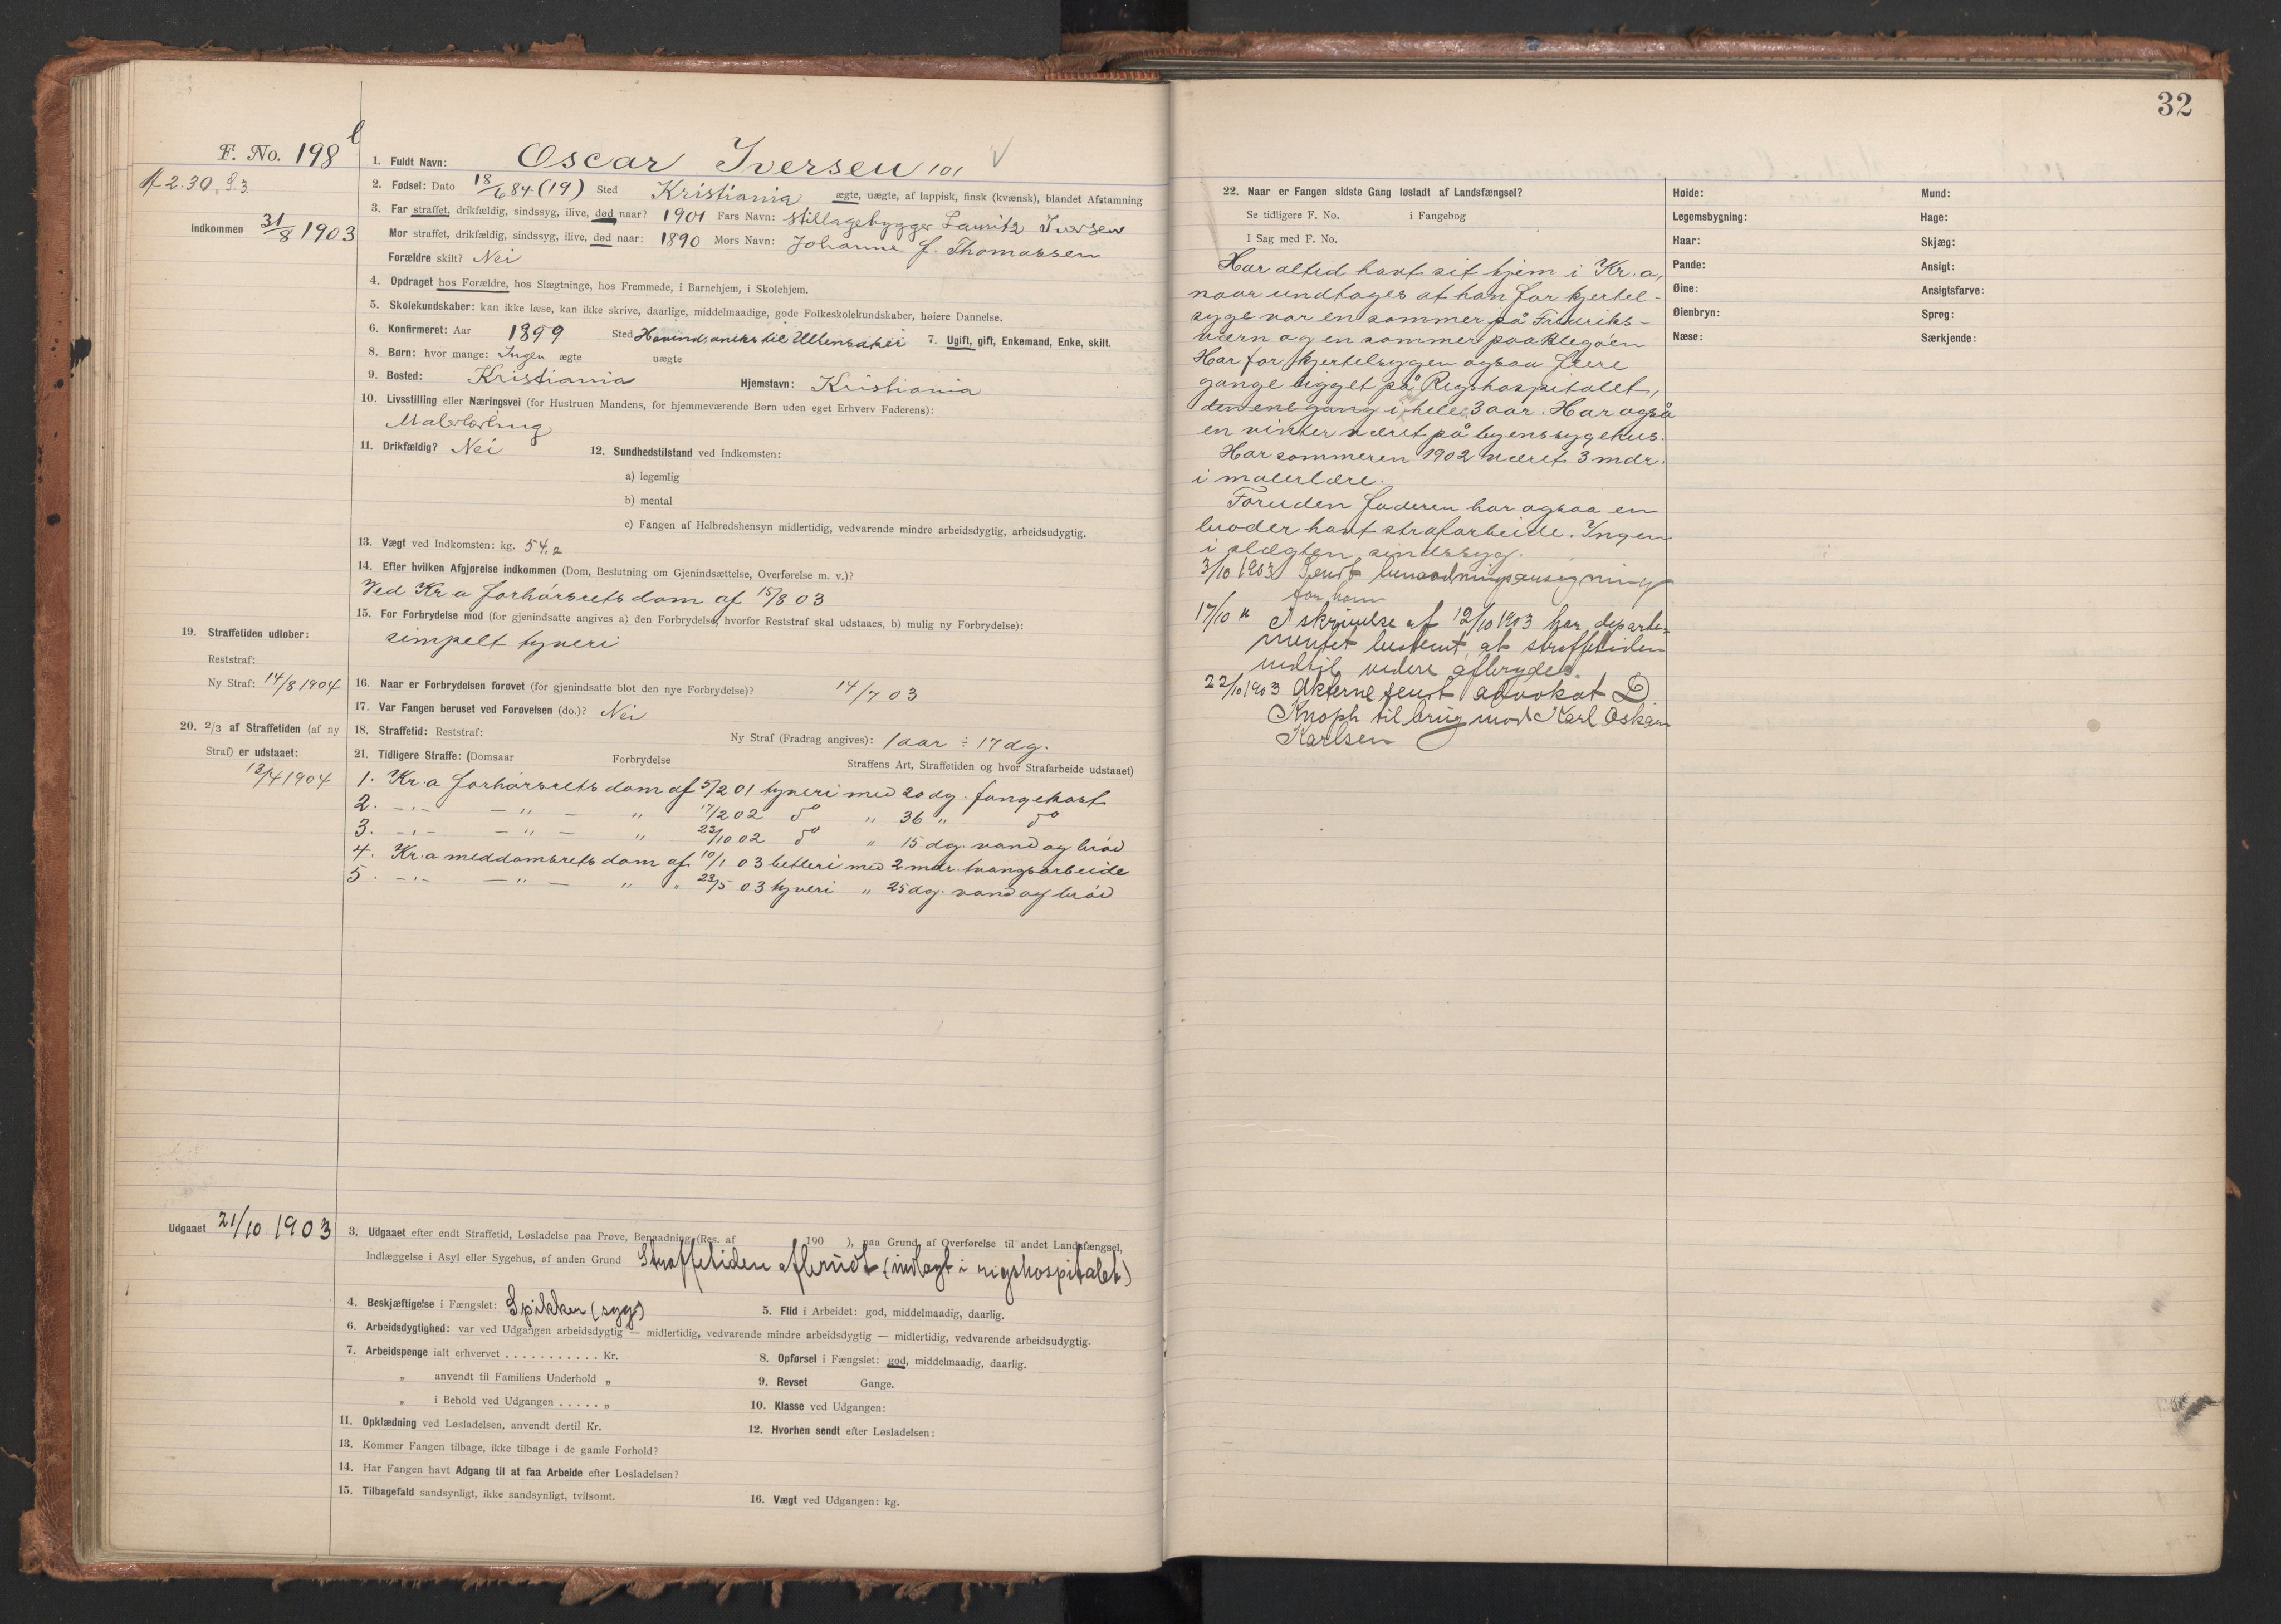 32
F. No. 198
l
A 2.30, S.3.
Indkommen 31/8 1903
1. Fuldt Navn: Oscar Iversen 101 V
2. Fødsel: Dato 18/6 84 (19) Sted Kristiania ægte, uægte, af lappisk, finsk (kvænsk), blandet Afstamning
3. Far straffet, drikfældig, sindssyg, ilive, død naar? 1901 Fars Navn: Stillagebygger Lauritz Iversen
Mor straffet, drikfældig, sindssyg, ilive, død naar: 1890 Mors Navn: Johanne J. Thomassen
Forældre skilt? Nei
4. Opdraget hos Forældre, hos Slægtninge, hos Fremmede, i Barnehjem, i Skolehjem.
5. Skolekundskaber: kan ikke læse, kan ikke skrive, daarlige, middelmaadige, gode Folkeskolekundskaber, høiere Dannelse.
6. Konfirmeret: Aar 1899 Sted Hovind, aneks til Ullensaker 7. Ugift, gift, Enkemand, Enke, skilt.
8. Børn: hvor mange: Ingen ægte uægte
9. Bosted: Kristiania Hjemstavn: Kristiania
10. Livsstilling eller Næringsvei (for Hustruen Mandens, for hjemmeværende Børn uden eget Erhverv Faderens):
Malerlærling
11. Drikfældig? Nei 12. Sundhedstilstand ved Indkomsten:
a) legemlig
b) mental
c) Fangen af Helbredshensyn midlertidig, vedvarende mindre arbeidsdygtig, arbeidsudygtig.
13. Vægt ved Indkomsten: kg. 54,2
14. Efter hvilken Afgjørelse indkommen (Dom, Beslutning om Gjenindsættelse, Overførelse m. v.)?
Ved Kr.a forhørsrets dom af 15/8 03
15. For Forbrydelse mod (for gjenindsatte angives a) den Forbrydelse, hvorfor Reststraf skal udstaaes, b) mulig ny Forbrydelse):
simpelt tyveri
19. Straffetiden udløber:
Reststraf:
Ny Straf: 14/8 1904
16. Naar er Forbrydelsen forøvet (for gjenindsatte blot den nye Forbrydelse)? 14/7 03
17. Var Fangen beruset ved Forøvelsen (do.)? Nei
20. 2/3 af Straffetiden (af ny
Straf) er udstaaet:
13/4 1904
18. Straffetid: Reststraf: Ny Straf (Fradrag angives): 1 aar ÷ 17 dg.
21. Tidligere Straffe: (Domsaar Forbrydelse Straffens Art, Straffetiden og hvor Strafarbeide udstaaet)
1. Kr.a forhørsrets dom af 5/2 01 tyveri med 20 dg. fangekost
2. -„- -„- „ 17/2 02 do „ 36 „ do
3. -„- -„- „ 23/10 02 do „ 15 dg. vand og brød
4. Kr.a meddomsrets dom af 10/1 03 betleri med 2 mdr. tvangsarbeide
5. -„- -„- „ „ 23/5 03 tyveri „ 25 dg. vand og brød
Udgaaet 21/10 1903
3. Udgaaet efter endt Straffetid, Løsladelse paa Prøve, Benaadning (Res. af 190 ), paa Grund af Overførelse til andet Landsfængsel,
Indlæggelse i Asyl eller Sygehus, af anden Grund Straffetiden afbrudt (indlagt i rigshospitalet)
4. Beskjæftigelse i Fængslet: Spikker (syg) 5. Flid i Arbeidet: god, middelmaadig, daarlig.
6. Arbeidsdygtighed: var ved Udgangen arbeidsdygtig — midlertidig, vedvarende mindre arbeidsdygtig — midlertidig, vedvarende arbeidsudygtig.
7. Arbeidspenge ialt erhvervet . . . . . . . . . . . Kr. 8. Opførsel i Fængslet: god, middelmaadig, daarlig.
„ anvendt til Familiens Underhold „ 9. Revset Gange.
„ i Behold ved Udgangen . . . . . „ 10. Klasse ved Udgangen:
11. Opklædning ved Løsladelsen, anvendt dertil Kr. 12. Hvorhen sendt efter Løsladelsen:
13. Kommer Fangen tilbage, ikke tilbage i de gamle Forhold?
14. Har Fangen havt Adgang til at faa Arbeide efter Løsladelsen?
15. Tilbagefald sandsynligt, ikke sandsynligt, tvilsomt. 16. Vægt ved Udgangen: kg.
22. Naar er Fangen sidste Gang løsladt af Landsfængsel?
Se tidligere F. No. i Fangebog
I Sag med F. No.
Har altid havt sit hjem i Kr.a,
naar undtages at han for kjertel-
syge var en sommer på Fredriks-
værn og en sommer paa
Har for kjertelsygen ogsaa flere
gange ligget på Rigshospitalet,
den ene gang i hele 3 aar. Har også
en vinter været på byens sygehus.
Har sommeren 1902 været 3 mdr.
i malerlære.
Foruden faderen har ogsaa en
broder havt strafarbeide. Ingen
i slægten sindssyg.
3/10 1903 Sendt benaadningsansøgning
for ham
17/10 " I skrivelse af 12/10 1903 har departe-
mentet bestemt, at straffetiden
indtil videre afbrydes.
22/10 1903 Akterne sendt advokat D.
Knoph til brug mod Karl Oskar
Karlsen
Høide: Mund:
Legemsbygning: Hage:
Haar: Skjæg:
Pande: Ansigt:
Øine: Ansigtsfarve:
Øienbryn: Sprog:
Næse: Særkjende: